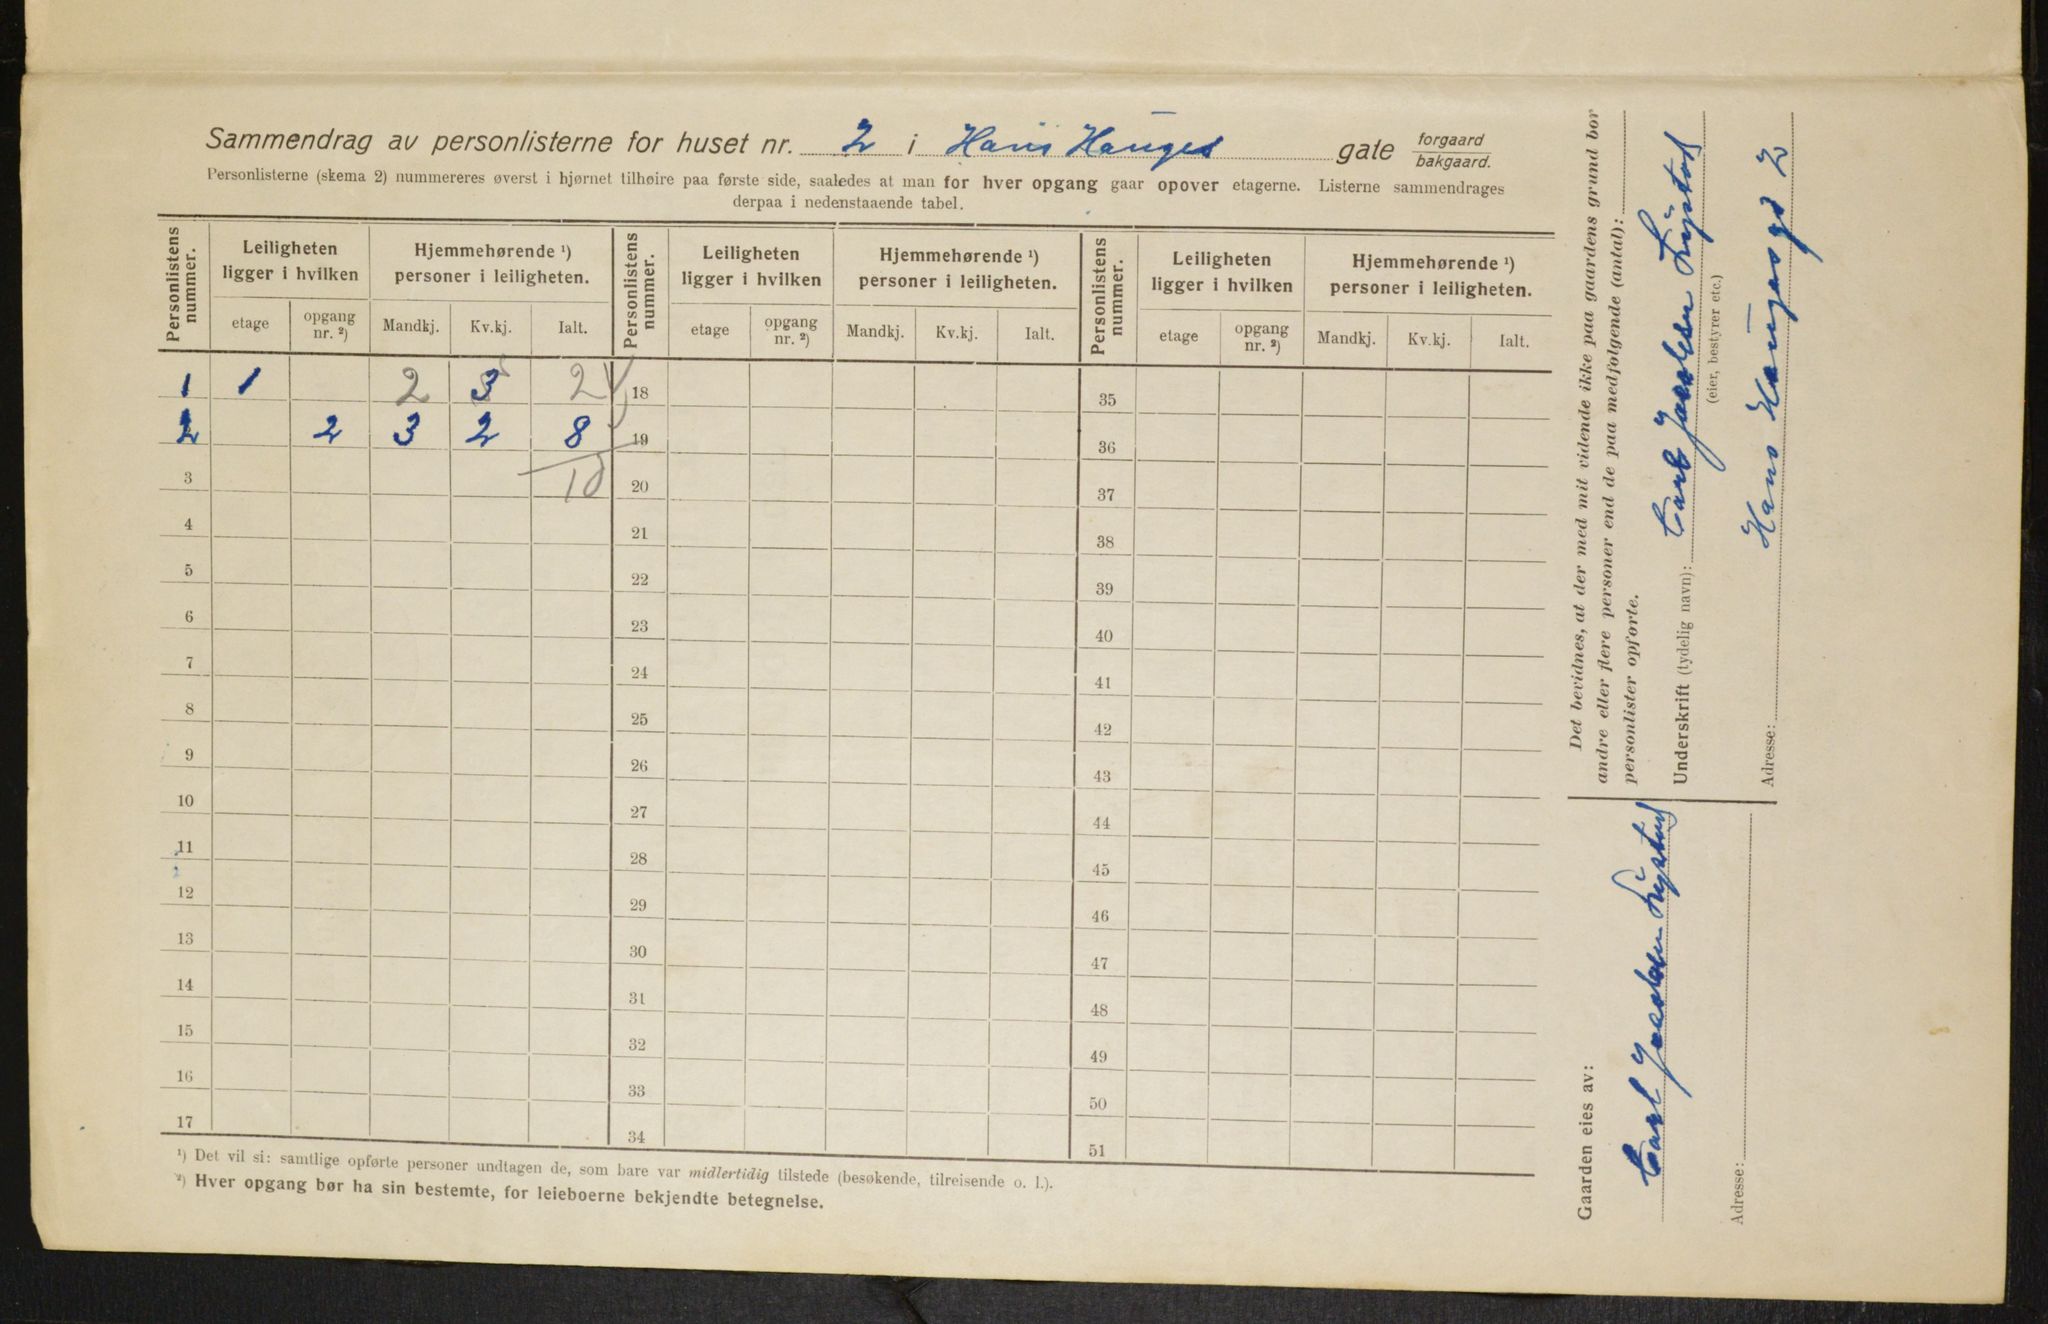 Sammendrag av personlisterne for huset nr. 2 i Hans Hauges gate forgaard bakgaard.
Personlisterne (skema 2) nummereres øverst i hjørnet tilhøire paa første side, saaledes at man for hver opgang gaar opover etagerne. Listerne sammendrages
derpaa i nedenstaaende tabel.
Personlistens nummer. Leiligheten ligger i hvilken Hjemmehørende ¹) personer i leiligheten. Personlistens nummer. Leiligheten ligger i hvilken Hjemmehørende ¹) personer i leiligheten. Personlistens nummer. Leiligheten ligger i hvilken Hjemmehørende ¹) personer i leiligheten.
etage opgang nr. ²) Mandkj. Kv.kj. Ialt. etage opgang nr. ²) Mandkj. Kv.kj. Ialt. etage opgang nr. ²) Mandkj. Kv.kj. Ialt.
1 1 2 3 2 18 35
2 2 3 2 8 19 36
3 10 20 37
4 21 38
5 22 39
6 23 40
7 24 41
8 25 42
9 26 43
10 27 44
11 28 45
12 29 46
13 30 47
14 31 48
15 32 49
16 33 50
17 34 51
¹) Det vil si: samtlige opførte personer undtagen de, som bare var midlertidig tilstede (besøkende, tilreisende o. l.).
²) Hver opgang bør ha sin bestemte, for leieboerne bekjendte betegnelse.
Det bevidnes, at der med mit vidende ikke paa gaardens grund bor
andre eller flere personer end de paa medfølgende (antal):
personlister opførte.
Underskrift (tydelig navn): Carl
(eier, bestyrer etc.)
Adresse: Hans Haugesgt 2
Gaarden eies av:
Carl
Adresse: